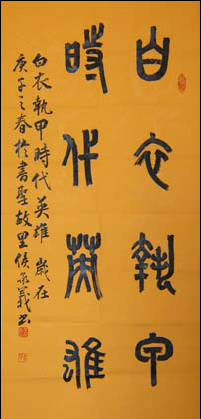 白衣執甲
時代英雄
白衣執甲時代英雄 歲在
庚子之春於書聖故里侯承義書